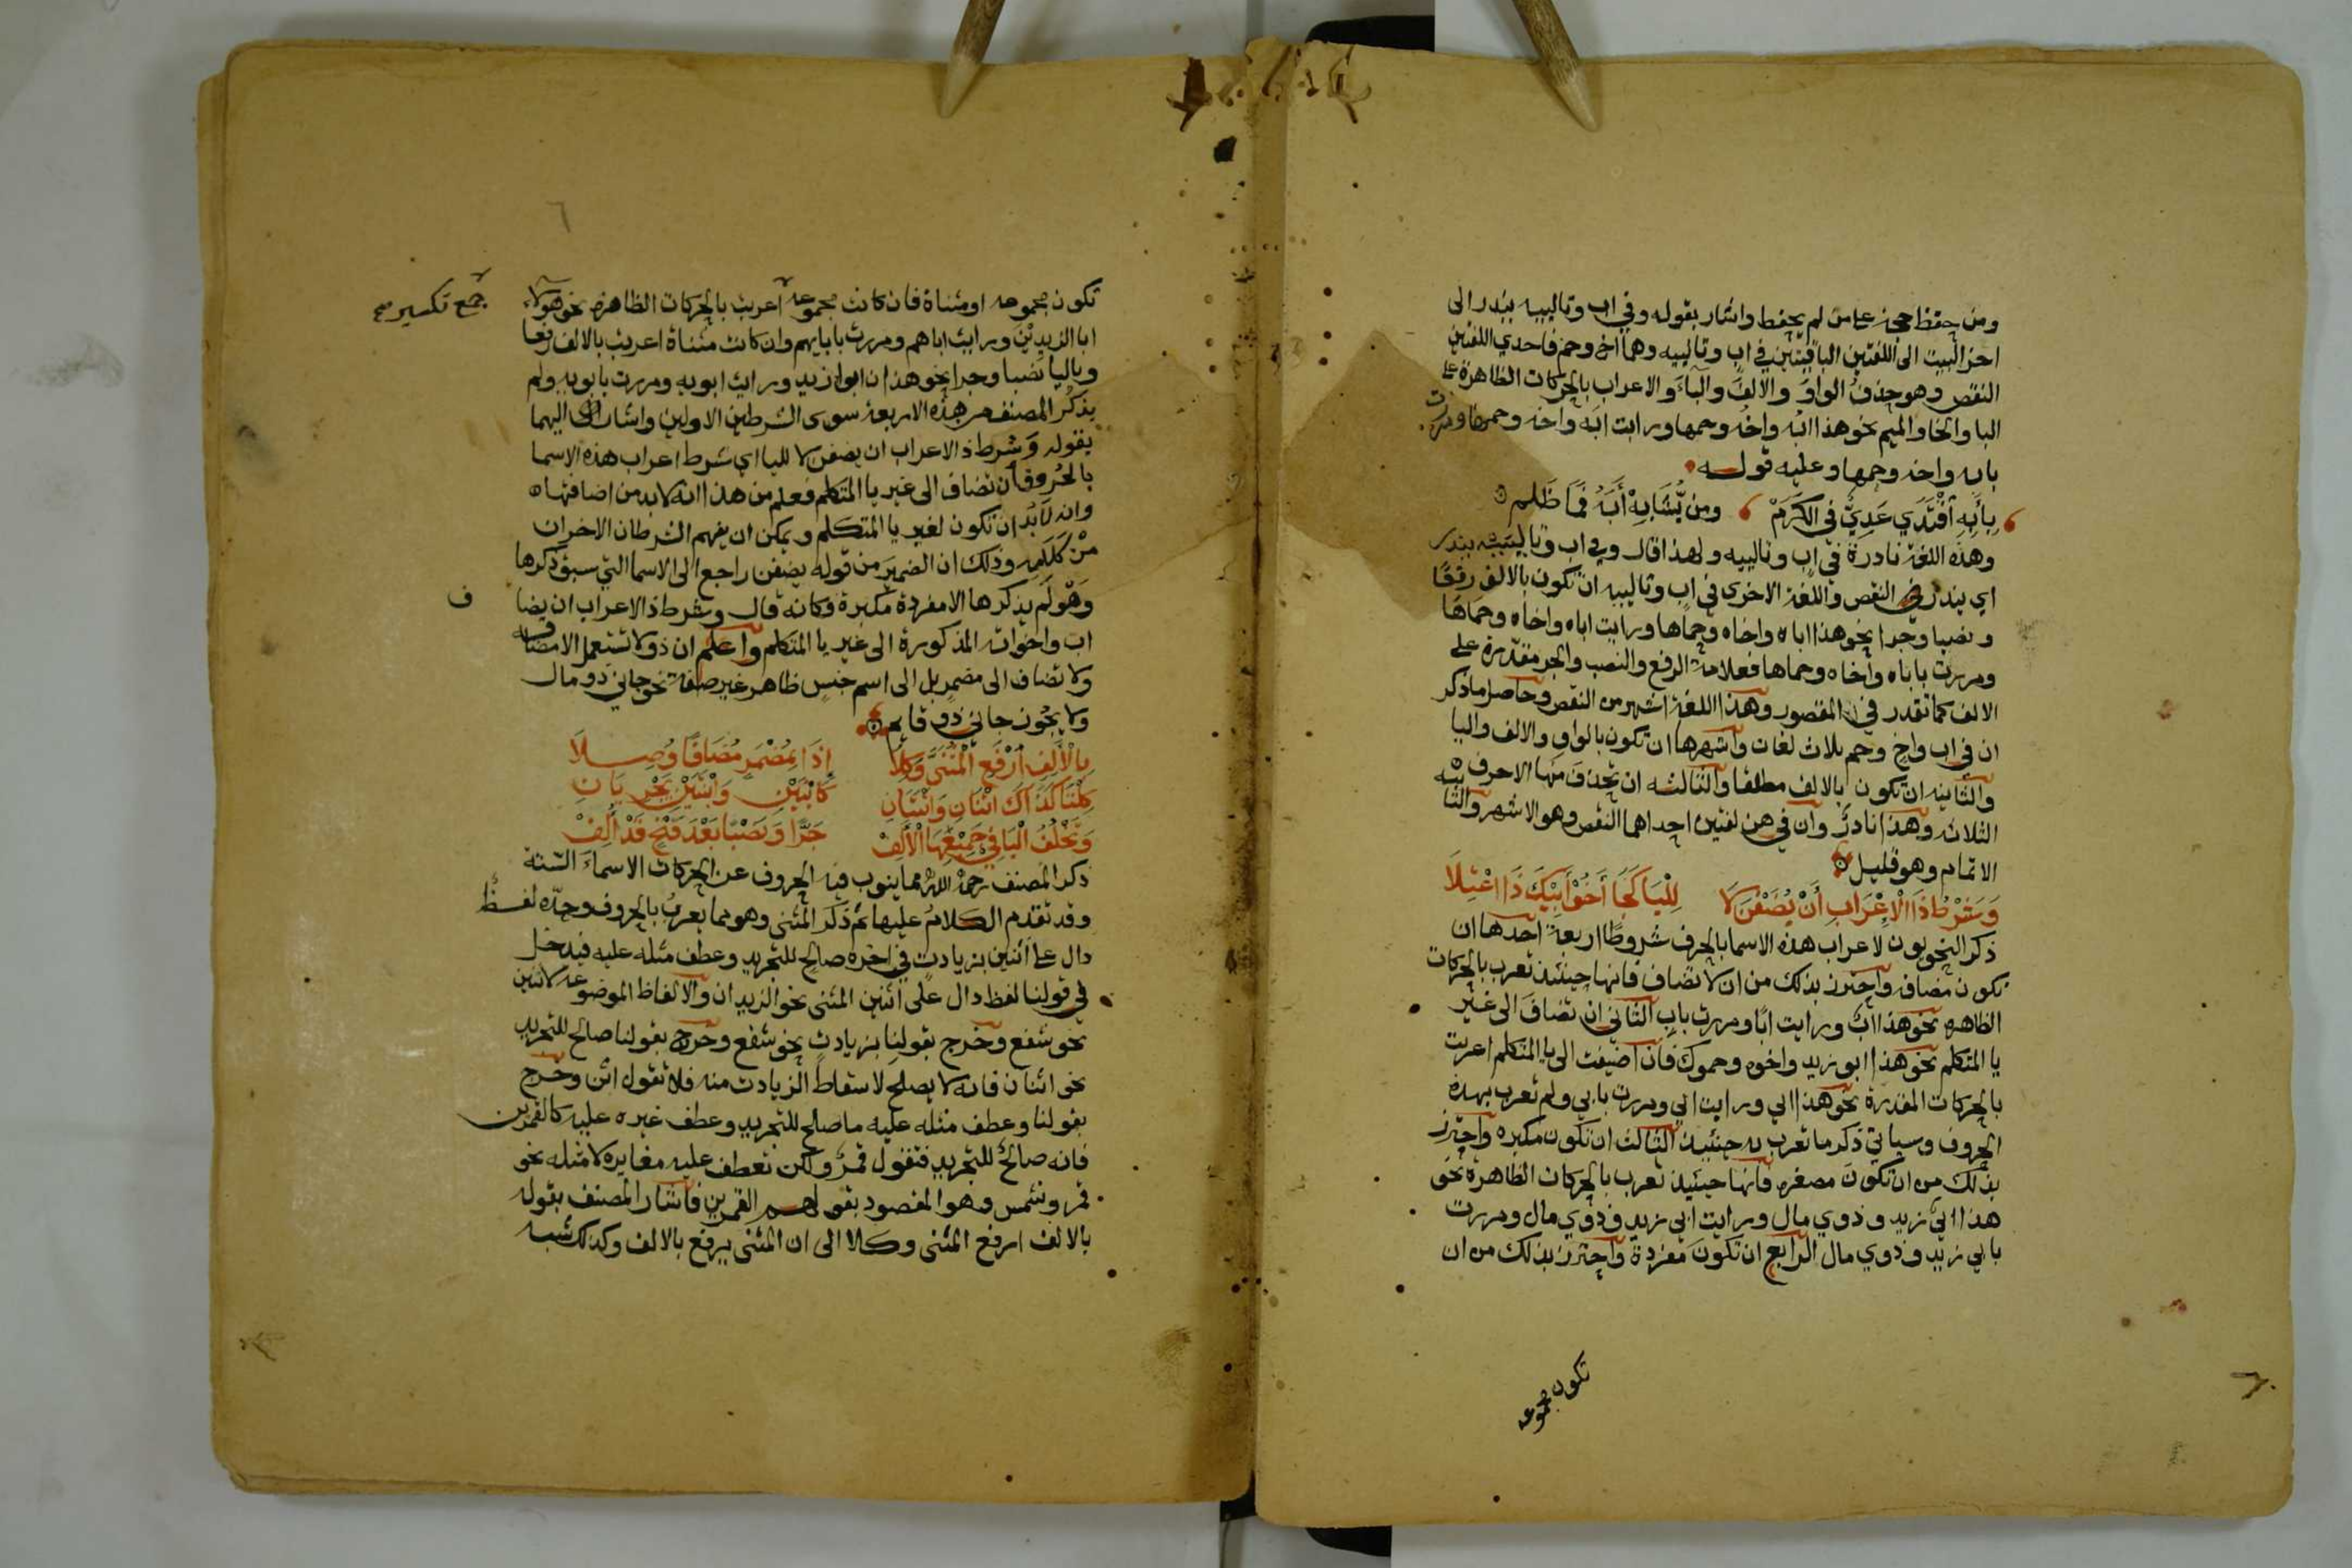 ومن حفظ حجة على من لم يحفظ واشار بقوله وفي اب وتالييه يندر الى
اخر البيت الى اللغتين الباقيتين في اب وتالييه وهما اخ وحم فاحدي اللغتين
النقص وهو حذف الواو والالف والياء والاعراب بالحركات الظاهرة على
البا والخا والميم نحو هذا ابه واخه وحمها ورايت ابه واخه وحمها ومررت
بابه واخه وحمها وعليه قوله
بِأَبِهِ اقْتَدَي عَدِيٌّ فِي الكَرَمْ ومن يُّشَابِهْ أَبَهُ فَمَا ظَلم
وهذه اللغة نادرة في اب وتالييه ولهذا قال وفي اب وتالييه يندر
اي يندر النقص واللغة الاخرى في اب وتالييه ان تكون بالالف رفعًا
ونصبا وجرا نحو هذا اباه واخاه وحماها ورايت اباه واخاه وحماها
ومررت باباه واخاه وحماها فعلامة الرفع والنصب والجر مقدرة على
الالف كما تقدر في المقصور وهذا اللغة اشهر من النقص وحاصل ما ذكر
ان في اب واخ وحم ثلاث لغات واشهرها ان تكون بالواو والالف واليا
والثانيه ان تكون بالالف مطلقا والثالثه ان تحذف منها الاحرف
الثلاثه وهذا نادرٌ وان في هن لغتين احداهما النقص وهو الاشهر والثانيه
الاتمام وهو قليل
وَشَرْطُ ذَا الْإِعْرَابِ أَنْ يُضَفْنَ لَا لِلْيَا كَجَا أَخُوْ أَبِيْكَ ذَا اعْتِلَا
ذكر النحويون لاعراب هذه الاسما بالحرف شروطًا اربعة احدها ان
تكون مضافه واحترز بذلك من ان لا تضاف فانها حينئذ تعرب بالحركات
الظاهره نحو هذا ابٌ ورايت ابًا ومررت بابٍ الثاني ان تضاف الى غير
يا المتكلم نحو هذا ابو زيد واخوه وحموك فان اضيفت الى يا المتكلم اعربت
بالحركات المقدرة نحو هذا ابي ورايت ابي ومررت بابي ولم تعرب بهذه
الحروف وسياتي ذكر ما تعرب به حينئيذ الثالث ان تكون مكبره واحترز
بذلك من ان تكون مصغره فانها حينئيذ تعرب بالحركات الظاهرة نحو
هذا ابيّ زيد وذوي مال ورايت ابي زيد وذوي مال ومررت
بابي زيد وذوي مال الرابع ان تكون مفردة واحترز بذلك من ان
تكون مجموعه
تكون مجموعه او مثناة فان كانت مجموعه اعربت بالحركات الظاهره نحو هولاء
جمع تكسير صح
ابا الزيدِيْنَ ورايت اباهم ومررت بابايهم وان كانت مثناة اعربت بالالف رفعا
وباليا نصبا وجرا نحو هذان ابوا زيد ورايت ابويه ومررت بابويه ولم
يذكر المصنف من هذه الاربعة سوى الشرطين الاولين واشار اليهما
بقوله وشرط ذ الاعراب ان يضفن لا لليا اي شرط اعراب هذه الاسما
بالحروف ان تضاف الى غير يا المتكلم فعلم من هذا انه لا بد من اضافتها
وانه لابد ان تكون لغير يا المتكلم ويمكن ان يفهم الشرطان الاخران
من كلامه وذلك ان الضمير من قوله يضفن راجع الى الاسما التي سبق ذكرها
وهو لم يذكرها الا مفردة مكبرة وكانه قال وشرط ذ الاعراب ان يضا
ف
اب واخواته المذكورة الى غير يا المتكلم واعلم ان ذو لا تستعمل الا مضافه
ولا تضاف الى مضمر بل الى اسم جنس ظاهر غير صفة نحو جاني ذو مال
ولا يجون جاني ذو قايم
بِالْأَلِفِ ارْفَعِ الْمُثَنَّى وَكِلَا إِذَا بِمُضْمَرٍ مُضَافًا وُصِلَا
كِلْتَا كَذَاكَ اثْنَانِ وَاثْنَتَانِ كَابْنَيْنِ وَابْنَتَيْنِ يَجْرِيَانِ
وَتَخْلُفُ الْيَا فِيْ جَمِيْعِهَا الْأَلِفْ جَرًّا وَنَصْبًا بَعْدَ فَتْحٍ قَدْ أُلِفْ
ذكر المصنف رحمه الله مما ينوب فيه الحروف عن الحركات الاسماء الستة
وقد تقدم الكلام عليها ثم ذكر المثنى وهو مما يعرب بالحروف وحدّه لفظ
دال على اثنين بزيادت في اخره صالح للتجريد وعطف مثله عليه فيدخل
في قولنا لفظ دال على اثنين المثنى نحو الزيدان والالفاظ الموضوعه لاثنين
نحو شفع وخرج بقولنا بزيادتٍ نحو شفع وخرج بقولنا صالح للتجريد
نحو اثنان فانه لا يصلح لاسقاط الزيادت منه فلا تقول اثن وخرج
بقولنا وعطف مثله عليه ما صلح للتجريد وعطف غيره عليه كالقمرين
فانه صالحٌ للتجريد فتقول قمرٌ ولكن تعطف عليه مغايره لا مثله نحو
قمر وشمس وهو المقصود بقولهم القمرين فاشار المصنف بقوله
بالالف ارفع المثنى وكلا الى ان المثنى يرفع بالالف وكذلك شبه